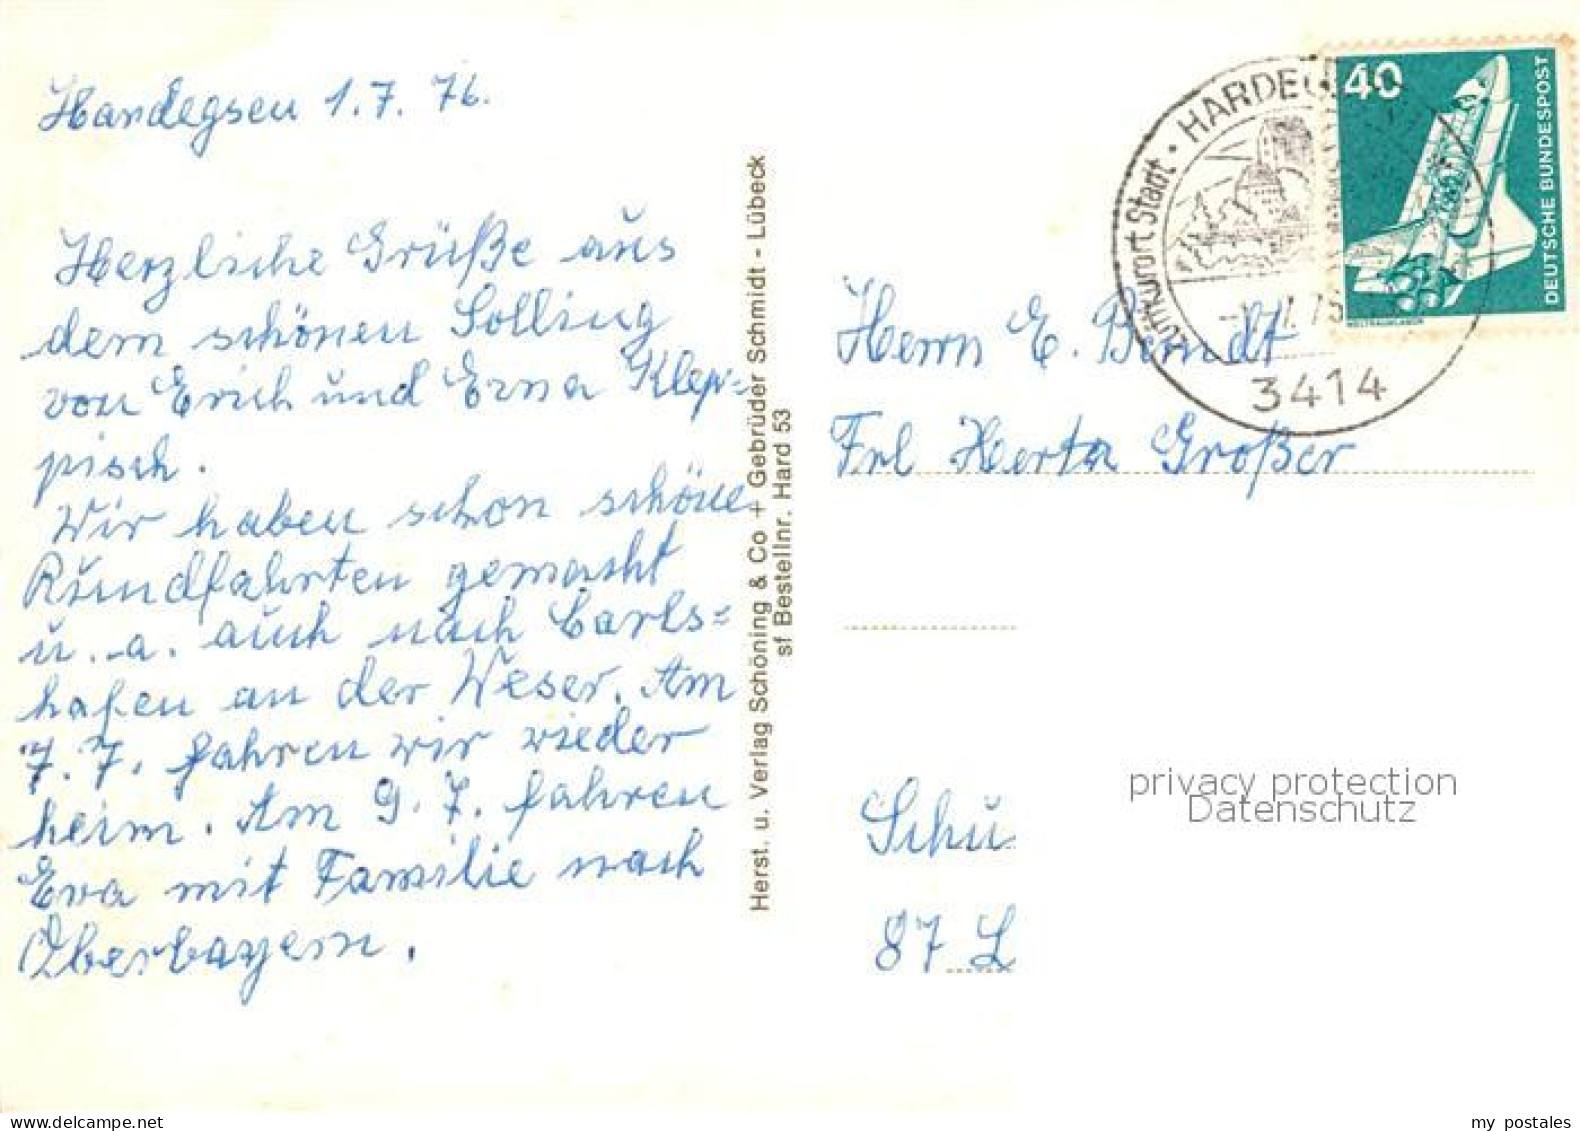 Hardegsen 1.7. 76.
Herzliche Grüße aus
dem schönen Solling
von Erich und Erna Klep=
pisch.
Wir haben schon schöne
Rundfahrten gemacht
u. a. auch nach Carls=
hafen an der Weser. Am
7. 7. fahren wir wieder
heim. Am 9. 7. fahren
Eva mit Familie nach
Oberbayern.
Herst. u. Verlag Schöning & Co + Gebrüder Schmidt - Lübeck
sf Bestellnr. Hard 53
Luftkurort Stadt · HARDEG
3414
40
DEUTSCHE BUNDESPOST
WELTRAUMLABOR
Herrn E. Berndt
Frl Herta Großer
Schu
87 L
privacy protection
Datenschutz
my postales